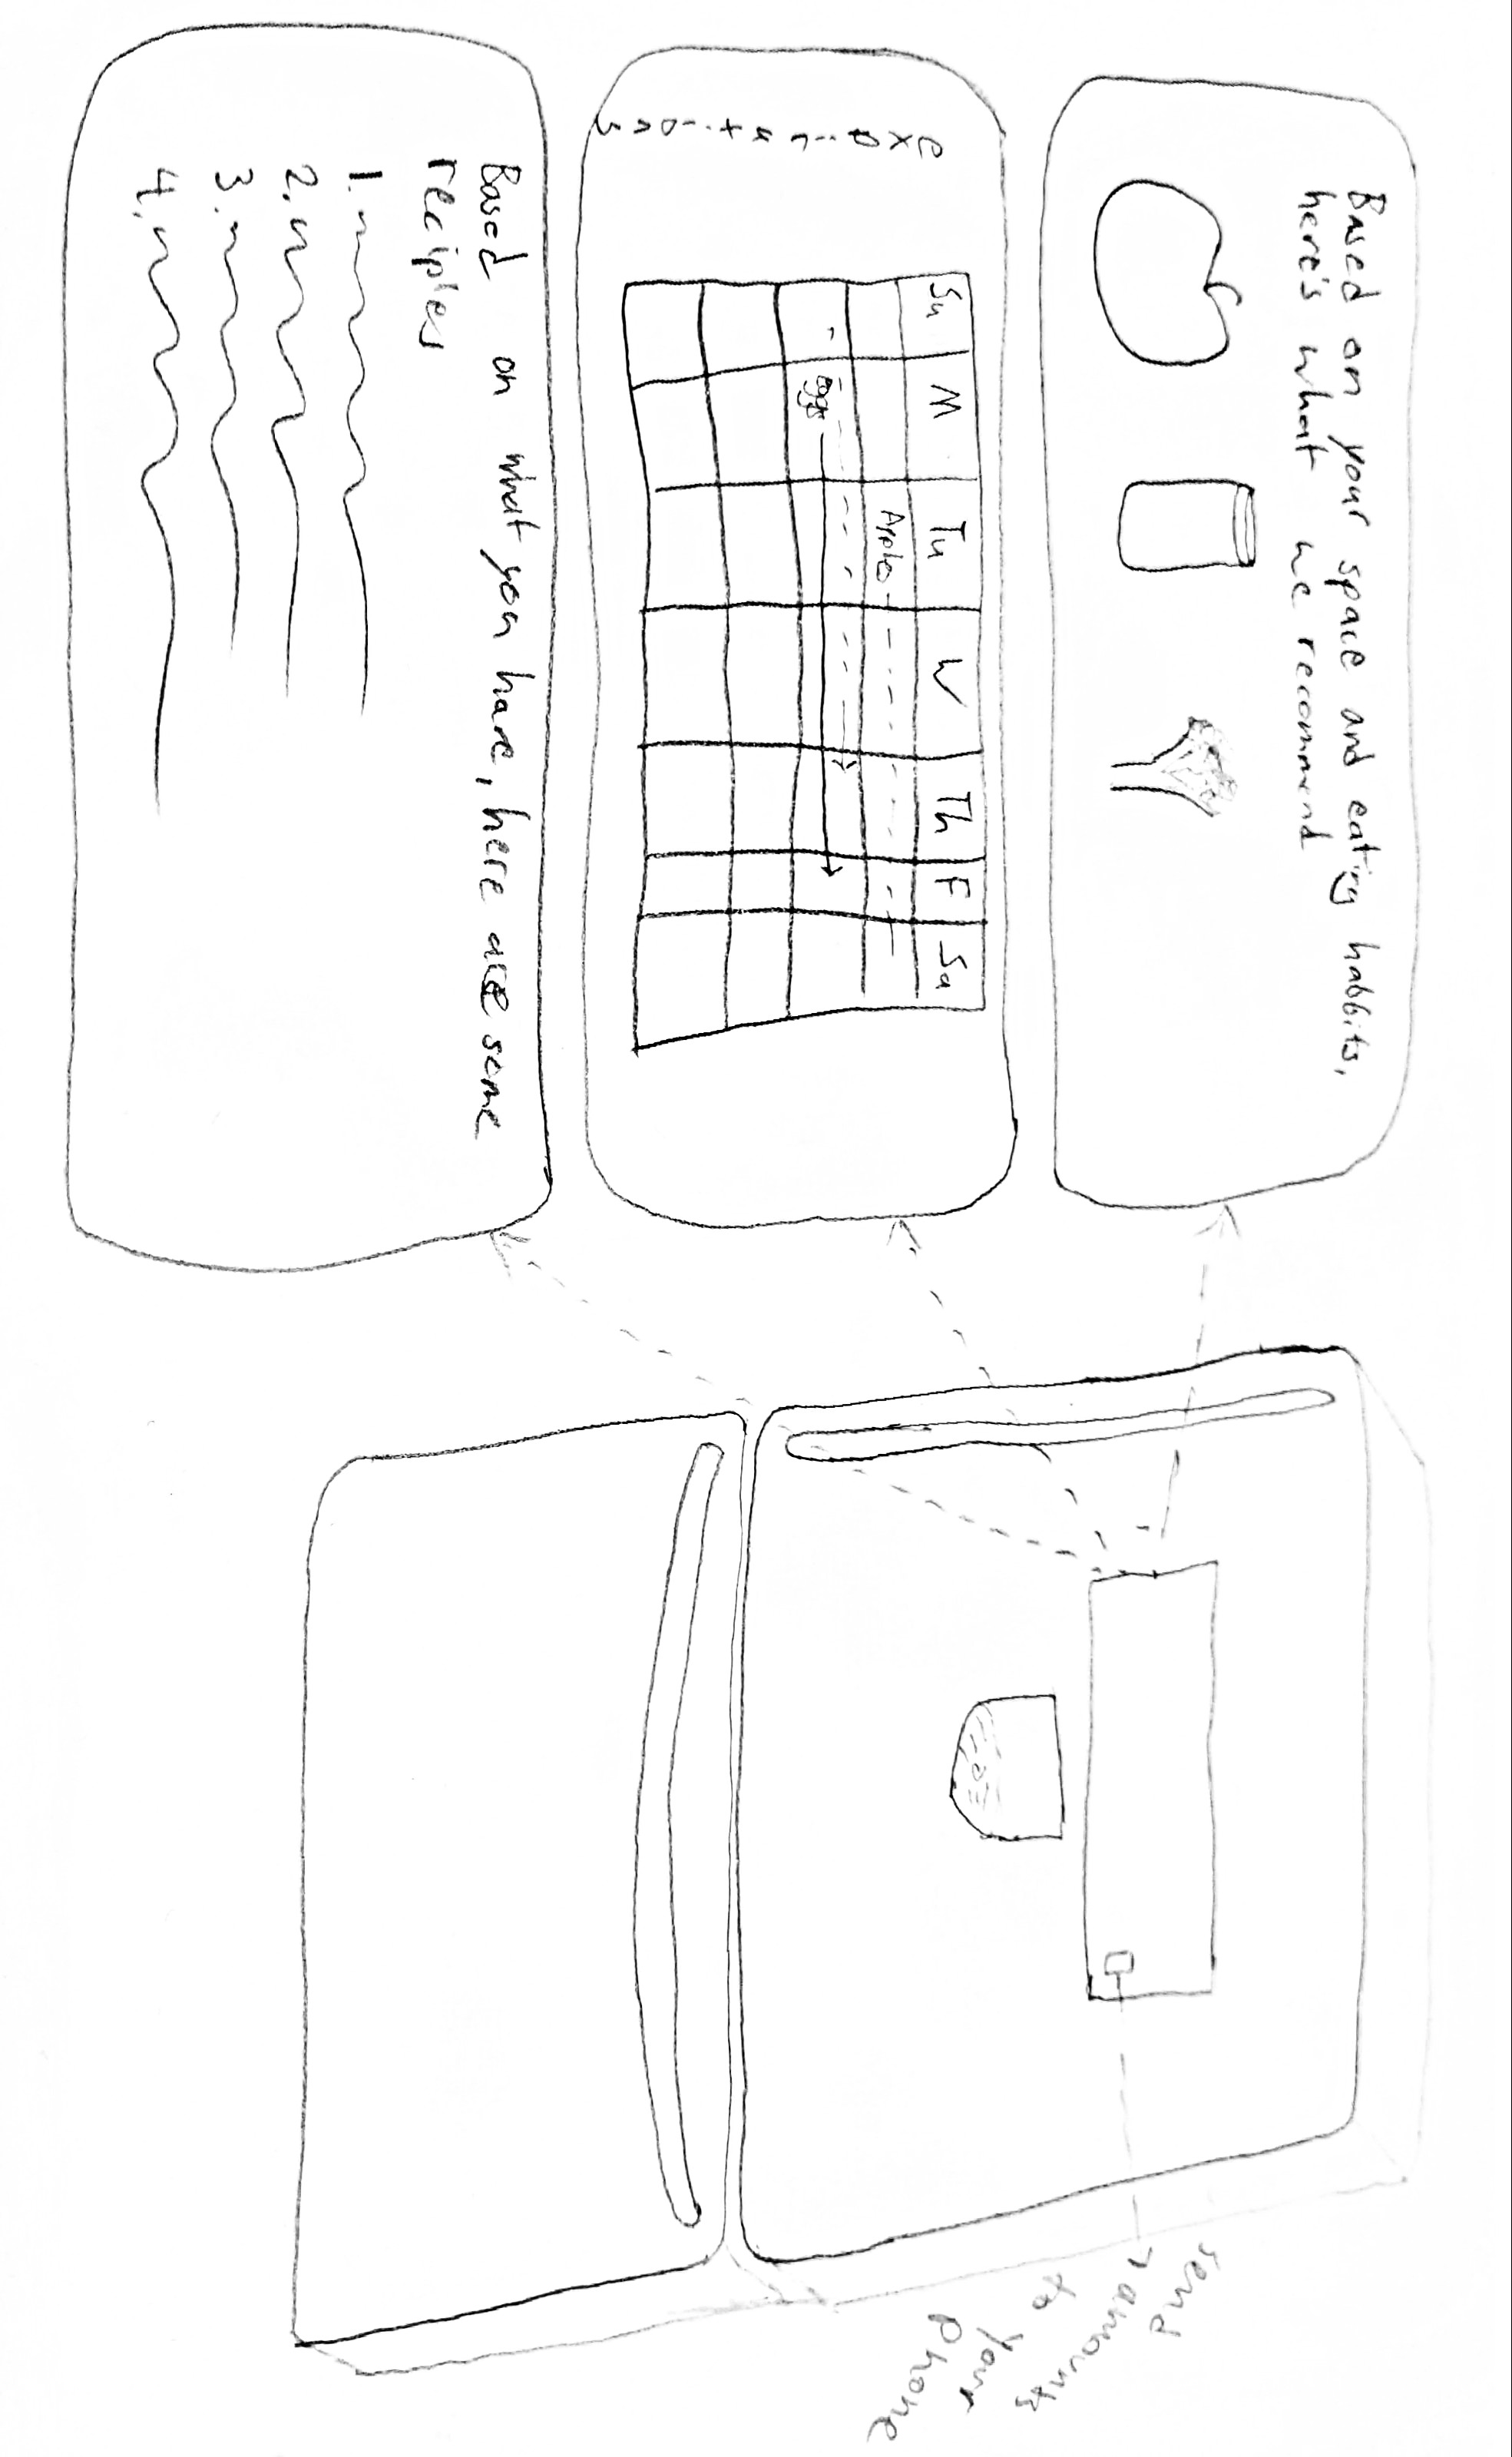 Based on your space and eating habbits,
here's what we recommend
expirations
Su M Tu W Th F Sa
Apples
Eggs
Based on what you have, here are some
recipies
1.
2.
3.
4.
send
amounts
to your
phone